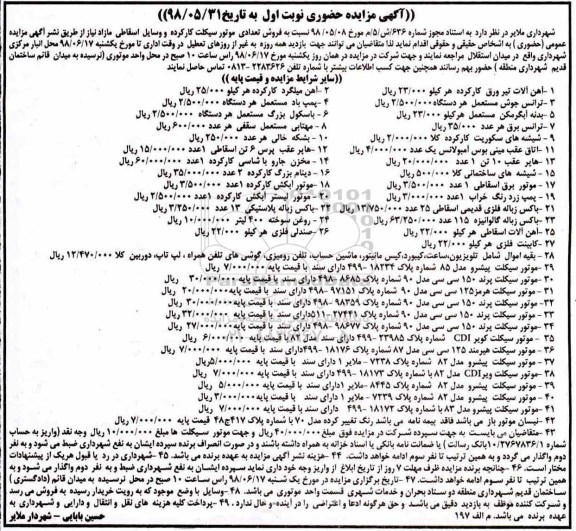 ((آگهی مزایده حضوری نوبت اول به تاریخ ۹۸/۰۵/۳۱))
شهرداری ملایر در نظر دارد به استناد مجوز شماره ۶۳۶/ش/۵/م مورخ ۹۸/۰۵/۰۸ نسبت به فروش تعدادی موتور سیکلت کارکرده و وسایل اسقاطی مازاد نیاز از طریق نشر آگهی مزایده
عمومی (حضوری) به اشخاص حقیقی و حقوقی اقدام نماید لذا متقاضیان می توانند جهت بازدید همه روزه به غیر از روزهای تعطیل در وقت اداری تا مورخ یکشنبه ۹۸/۰۶/۱۷ به محل انبار مرکزی
شهرداری واقع در میدان استقلال مراجعه نمایند و جهت شرکت در مزایده در همان روز یکشنبه مورخ ۹۸/۰۶/۱۷ راس ساعت ۱۰ صبح در محل واحد موتوری (نرسیده به میدان قائم ساختمان
قدیم شهرداری منطقه) حضور بهم رسانند همچنین جهت کسب اطلاعات بیشتر با شماره تلفن ۲۲۸۳۶۲۶-۰۸۱۳ تماس حاصل نمایند
((سایر شرایط مزایده و قیمت پایه))
۱-آهن آلات تیر ورق کارکرده هر کیلو ۲۳/۰۰۰ ریال
۲-آهن میلگرد کارکرده هر کیلو ۲۵/۰۰۰ ریال
۳-ترانس جوش مستعمل هر دستگاه ۲/۵۰۰/۰۰۰ ریال
۴-پمپ باد مستعمل هر دستگاه ۲/۵۰۰/۰۰۰ ریال
۵-بدنه آبگرمکن مستعمل هر کیلو ۲۳/۰۰۰ ریال
۶-باسکول بزرگ مستعمل هر دستگاه ۲/۵۰۰/۰۰۰ ریال
۷-ترانس برق هر عدد ۳۵/۰۰۰ ریال
۸-مهتابی مستعمل سقفی هر عدد ۶۰۰/۰۰۰ ریال
۹-شیشه های سکوریت کارکرده کلا ۲/۰۰۰/۰۰۰ ریال
۱۰-بشکه خالی هر عدد ۲۵۰/۰۰۰ ریال
۱۱-اتاق عقب مینی بوس آمبولانس یک عدد ۴/۰۰۰/۰۰۰ ریال
۱۲-هایر عقب پرس ۶ تن اسقاطی ۱عدد ۱۵/۰۰۰/۰۰۰ ریال
۱۳-هایر عقب ۱۰ تن ۱عدد ۲۰/۰۰۰/۰۰۰ ریال
۱۴-مخزن جارو با شاسی کارکرده ۱عدد ۶۰/۰۰۰/۰۰۰ ریال
۱۵-شیشه های ساختمانی کلا ۵۰۰/۰۰۰ ریال
۱۶-دینام بزرگ کارکرده ۲عدد ۳۵/۰۰۰/۰۰۰ ریال
۱۷-موتور برق اسقاطی ۱عدد ۲/۵۰۰/۰۰۰ ریال
۱۸-موتور آبکش کارکرده ۱عدد ۳/۵۰۰/۰۰۰ ریال
۱۹-پمپ زرد رنگ خراب ۱عدد ۳/۰۰۰/۰۰۰ ریال
۲۰-موتور لیستر آبکش کارکرده ۱عدد ۲/۵۰۰/۰۰۰ ریال
۲۱-باکس زباله فلزی قدیمی اسقاطی ۲۵ عدد ۱۳/۷۵۰/۰۰۰ ریال
۲۲-باکس زباله پلاستیکی ۱۳ عدد ۳/۲۵۰/۰۰۰ ریال
۲۳-باکس زباله گالوانیزه ۱۱۵ عدد ۶۳/۲۵۰/۰۰۰ ریال
۲۴-روغن سوخته ۲۰۰ لیتر ۱۰/۰۰۰/۰۰۰ ریال
۲۵-آهن آلات اسقاطی هر کیلو ۲۲/۰۰۰ ریال
۲۶-صندلی فلزی هر کیلو ۲۲/۰۰۰ ریال
۲۷-کابینت فلزی هر کیلو ۲۲/۰۰۰ ریال
۲۸-بقیه اموال شامل تلویزیون،ساعت،کیبورد،کیس مانیتور، ماشین حساب، تلفن رومیزی، گوشی های تلفن همراه، لپ تاپ، دوربین کلا ۱۲/۴۷۰/۰۰۰ ریال
۲۹-موتور سیکلت پیشرو مدل ۸۵ شماره پلاک ۱۸۲۳۴-۴۹۹ دارای سند با قیمت پایه ۷/۰۰۰/۰۰۰ ریال
۳۰-موتور سیکلت پرند ۱۵۰ سی سی مدل ۹۰ شماره پلاک ۸۶۸۵-۴۹۸ دارای سند با قیمت پایه ۳۰/۰۰۰/۰۰۰ ریال
۳۱-موتور سیکلت هرمز۱۲۵ سی سی مدل ۹۰ شماره پلاک ۹۷۱۵۱-۴۹۸ دارای سند با قیمت پایه ۲۰/۰۰۰/۰۰۰ ریال
۳۲-موتور سیکلت پرند ۱۵۰ سی سی مدل ۹۰ شماره پلاک ۹۸۳۵۹-۴۹۸ دارای سند با قیمت پایه ۳۰/۰۰۰/۰۰۰ ریال
۳۳-موتور سیکلت پرند ۱۵۰ سی سی مدل ۹۰ شماره پلاک ۲۷۴۴۱-۵۱۱ دارای سند با قیمت پایه ۳۲/۰۰۰/۰۰۰ ریال
۳۴-موتور سیکلت پرند ۱۵۰ سی سی مدل ۹۰ شماره پلاک ۹۸۶۷۷-۴۹۸ دارای سند با قیمت پایه ۲۷/۰۰۰/۰۰۰ ریال
۳۵-موتور سیکلت کویر CDI شماره پلاک ۲۳۹۸۵-۴۹۹ دارای سند مدل ۸۲ با قیمت پایه ۶/۰۰۰/۰۰۰ ریال
۳۶-موتور سیکلت هیرمند ۱۲۵ سی سی مدل ۸۷ شماره پلاک ۱۸۱۷۶-۴۹۹دارای سند با قیمت پایه ۷/۰۰۰/۰۰۰ ریال
۳۷-موتور سیکلت پیشرو مدل ۸۲ شماره پلاک ۷۲۳۸-ملایر ۱ دارای سند با قیمت پایه ۵/۰۰۰/۰۰۰ ریال
۳۸-موتور سیکلت ویرCDI مدل ۸۲ با شماره پلاک ۱۸۱۷۳-۴۹۹ دارای سند با قیمت پایه ۷/۰۰۰/۰۰۰ ریال
۳۹-موتور سیکلت پیشرو مدل ۸۲ شماره پلاک ۸۴۴۵-ملایر ۱دارای سند با قیمت پایه ۵/۰۰۰/۰۰۰ ریال
۴۰-موتور سیکلت پیشرو مدل ۸۲ شماره پلاک ۷۲۳۹-ملایر ۱ دارای سند با قیمت پایه ۳/۰۰۰/۰۰۰ ریال
۴۱-موتور سیکلت پیشرو مدل ۸۳ با شماره پلاک ۱۸۱۷۲-۴۹۹ دارای سند با قیمت پایه ۷/۰۰۰/۰۰۰ ریال
۴۲-نیسان موتور باز می باشد فاقد بیمه نامه می باشد رنگ تغییر کرده مدل ۷۰ با شماره پلاک ۴۱۷ج۴۸ قیمت پایه ۷/۰۰۰/۰۰۰ ریال
۴۳-متقاضیان می بایست به جهت سپرده شرکت در مزایده فوق مبلغ ۴۰/۰۰۰/۰۰۰ ریال و جهت موتور سیکلت ها مبلغ ۱۰/۰۰۰/۰۰۰ ریال وجه نقد (واریز به حساب
شماره ۱۰/۲۷۶۷۸۳۶/۱بانک رسالت) یا ضمانت نامه بانکی یا اسناد خزانه به همراه داشته باشند و در صورت انصراف برنده سپرده ایشان به نفع شهرداری ضبط می شود و به نفر
دوم واگذار می گردد و به همین ترتیب تا نفر سوم ادامه خواهد داشت. ۴۴-هزینه نشر آگهی مزایده به عهده برنده می باشد. ۴۵-شهرداری در رد یا قبول هریک از پیشنهادات
مختار است. ۴۶-چنانچه برنده مزایده ظرف مهلت ۷ روز از تاریخ ابلاغ از واریز وجه خود داری نماید سپرده ایشان به نفع شهرداری ضبط و به نفر دوم واگذار می شود و به
همین ترتیب تا نفر سوم ادامه خواهد داشت. ۴۷-تاریخ برگزاری مزایده در مورخ یک شنبه ۹۸/۰۶/۱۷ راس ساعت ۱۰ صبح در محل نرسیده به میدان قائم (دادگستری)
ساختمان قدیم شهرداری منطقه دو ستاد بحران و خدمات شهری قسمت واحد موتوری می باشد. ۴۸-وسایل با وضع موجود که به رویت خریدار رسیده به فروش می رسد
و شرکت کننده موظف به بازدید دقیق می باشد و حق هرگونه ادعا و اعتراضی را در آینده و حال ندارد. ۴۹-پرداخت کلیه هزینه های نقل و انتقال و دارایی و شهرداری به
عهده برنده می باشد. م الف ۱۹۷
حسین بابایی - شهردار ملایر